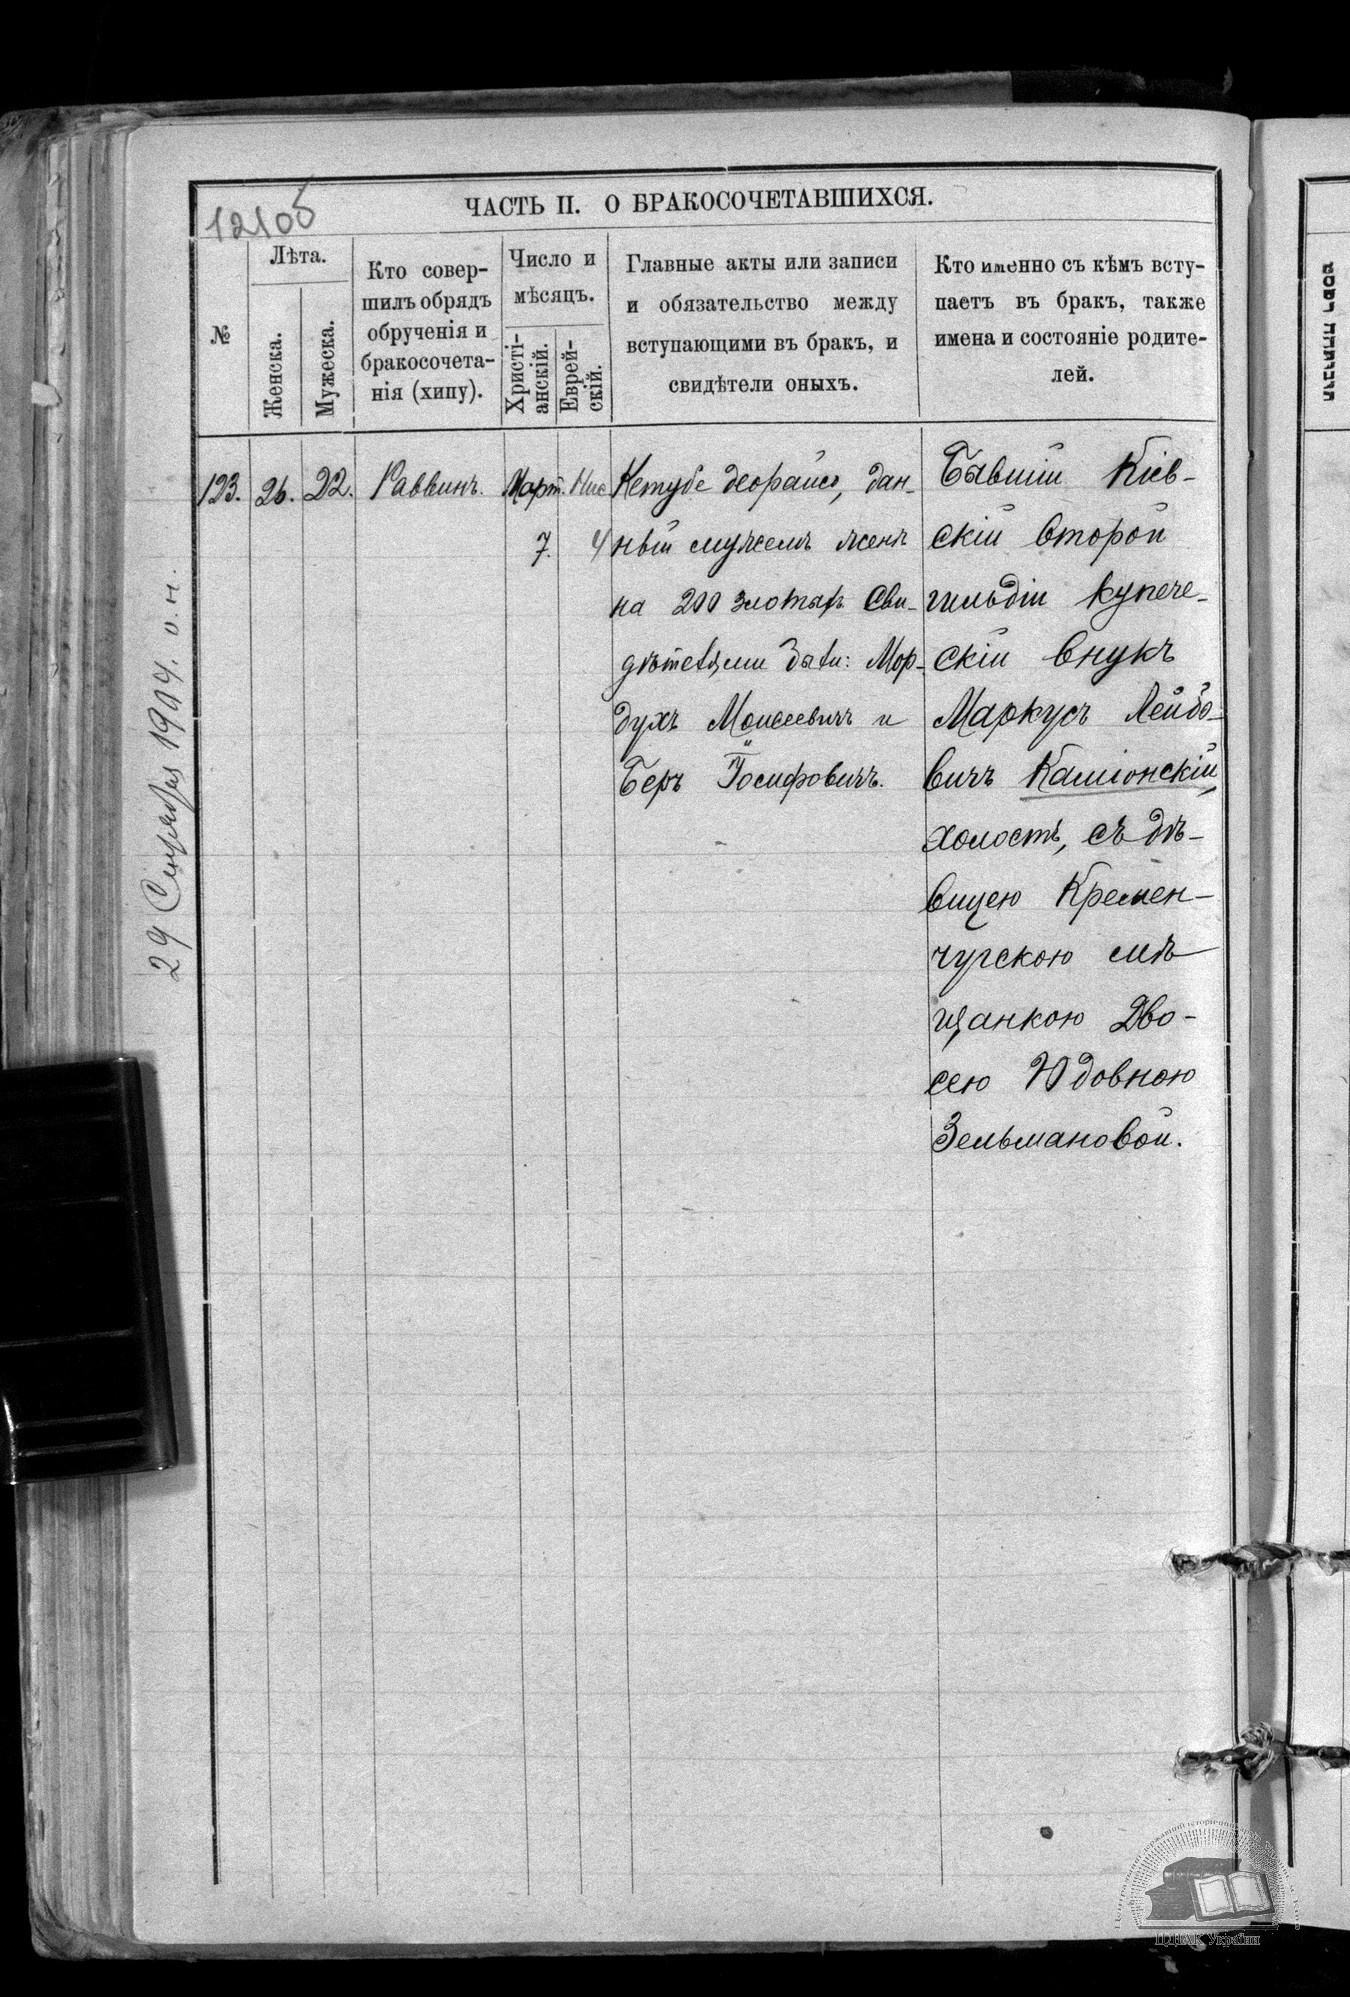 12105
ЧАСТЬ II. О БРАКОСОЧЕТАВШИХСЯ.
№
Лѣта.
Женска.
Мужеска.
Кто совер-
шилъ обрядъ
обрученія и
бракосочета-
нія (хипу).
Число и
мѣсяцъ.
Христі-
анскій.
Еврей-
скій.
Главные акты или записи
и обязательство между
вступающими въ бракъ, и
свидѣтели оныхъ.
Кто именно съ кѣмъ всту-
паетъ въ бракъ, также
имена и состояніе родите-
лей.
123. 26. 22. Раввинъ. Март. Нис
7. 4
Кетубе деорайсо, дан-
ный мужемъ женѣ
на 200 злотыхъ Сви-
дѣтелями были: Мор-
духъ Моисеевичъ и
Беръ Іосифовичъ.
Бывшій Кіев-
скій второй
гильдіи купече-
скій внукъ
Маркусъ Лейбо-
вичъ Каміонскій,
холостъ, съ дѣ-
вицею Кремен-
чугскою мѣ-
щанкою Дво-
сею Юдовною
Зельмановой.
29 1904. о. н.
ЦДІАК України